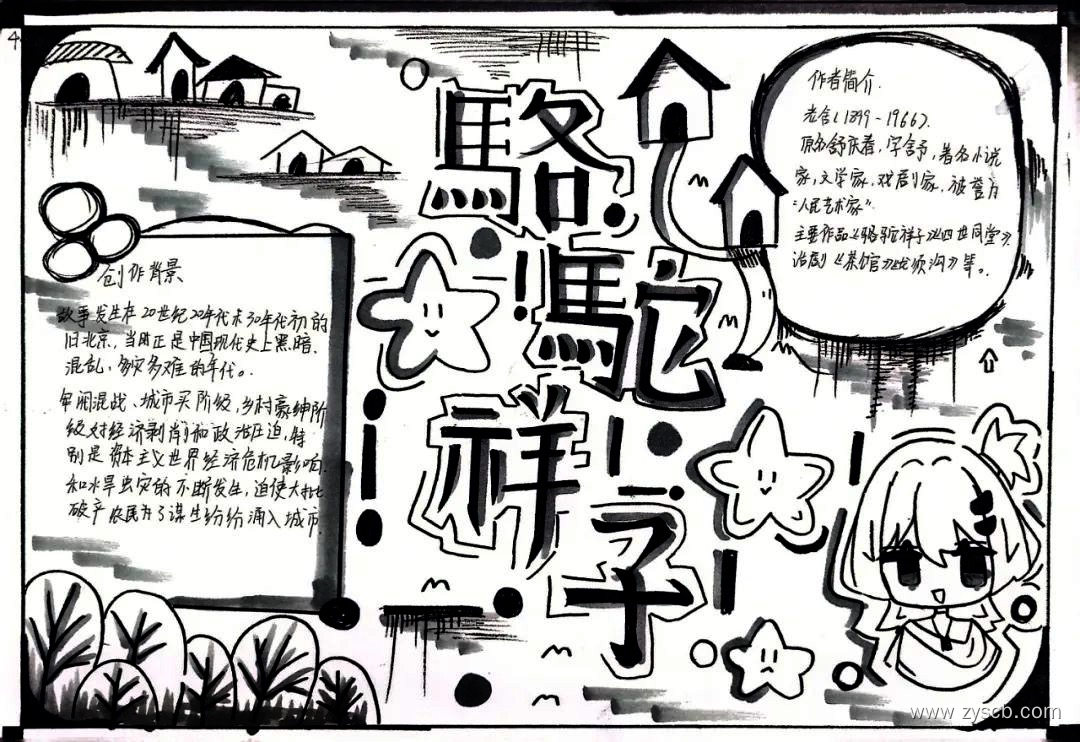 4
駱
駝
祥
子
作者简介.
老舍(1899-1966).
原名舒庆春,字舍予,著名小说
家,文学家,戏剧家,被誉为
"人民艺术家"
主要作品《骆驼祥子》《四世同堂》.
话剧《茶馆》《龙须沟》等。.
创作背景
故事发生在20世纪20年代末30年代初的
旧北京,当时正是中国现代史上黑暗.
混乱,多灾多难的年代。.
军阀混战、城市买阶级,乡村豪绅阶
级对经济剥削和政治压迫,特
别是资本主义世界经济危机影响
和水旱虫灾的不断发生,迫使大批
破产农民为了谋生纷纷涌入城市
www.zyscb.com